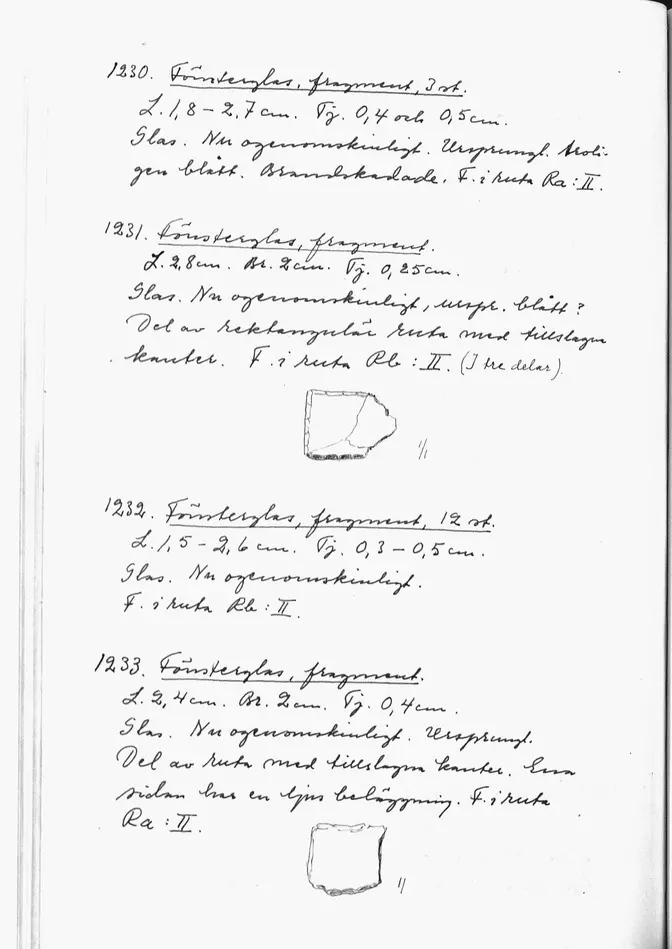 1230. Fönsterglas, fragment, 3 st.
L. 1,8 – 2,7 cm. Tj. 0,4 och 0,5 cm.
Glas. Nu ogenomskinligt. Ursprungl. troli-
gen blått. Brandskadade. F. i ruta Ra : II.
1231. Fönsterglas, fragment.
L. 2,8 cm. Br. 2 cm. Tj. 0,25 cm.
Glas. Nu ogenomskinligt, urspr. blått?
Del av rektangulär ruta med tillslagna
kanter. F. i ruta Rb : II. (I tre delar).
1/1
1232. Fönsterglas, fragment, 12 st.
L. 1,5 – 2,6 cm. Tj. 0,3 – 0,5 cm.
Glas. Nu ogenomskinligt.
F. i ruta Rb : II.
1233. Fönsterglas, fragment.
L. 2,4 cm. Br. 2 cm. Tj. 0,4 cm.
Glas. Nu ogenomskinligt. Ursprungl.
Del av ruta med tillslagna kanter. Ena
sidan har en ljus beläggning. F. i ruta
Ra : II.
1/